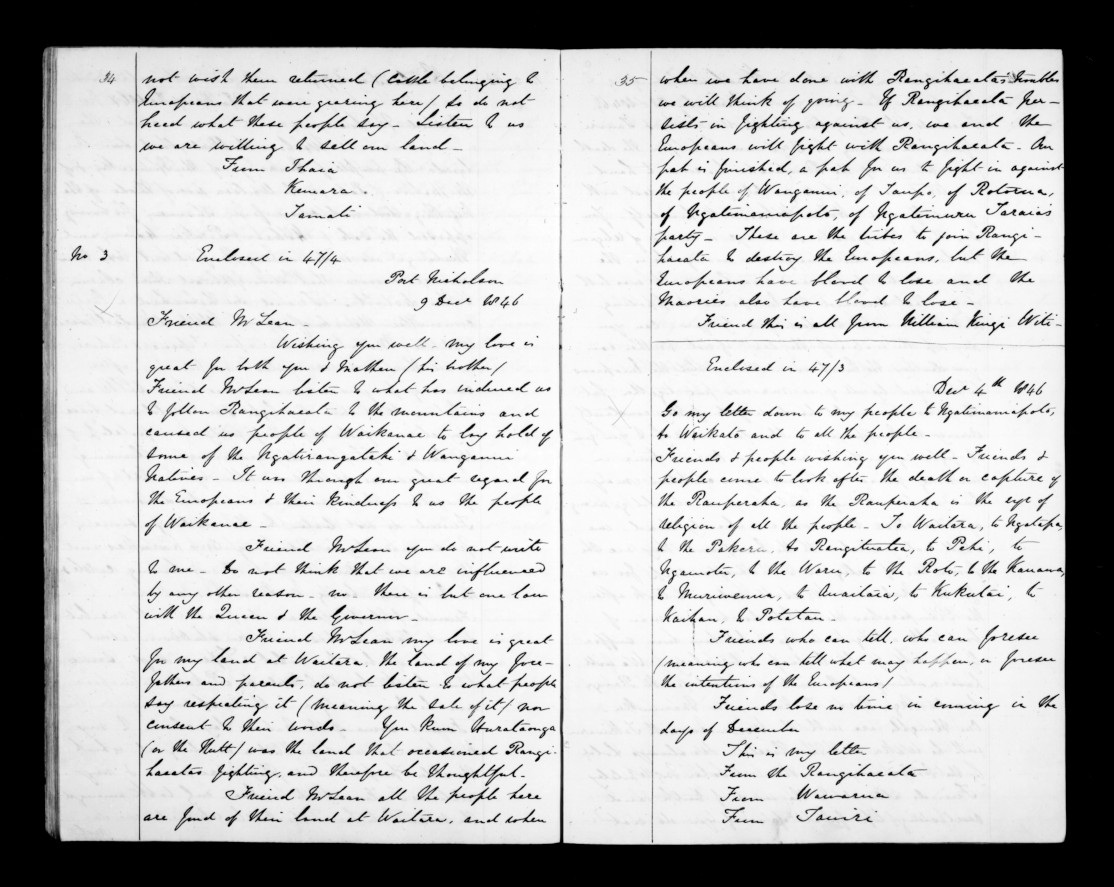 34
not wish them returned (Cattle belonging to
Europeans that were grazing here) so do not
heed what these people say - Listen to us
we are willing to sell our land -
From Ihaia
Kemara
Tamati
No 3
Enclosed in 47/4
Port Nicholson
9 Decr 1846
Friend McLean -
Wishing you well. my love is
great for both you & Mathew (his brother)
Friend McLean listen to what has induced us
to follow Rangihaeata to the mountains and
caused us people of Waikanae to lay hold of
some of the Ngatirangatahi & Wanganui
Natives - It was through our great regard for
the Europeans & their kindness to us the people
of Waikanae -
Friend McLean you do not write
to me - Do not think that we are influenced
by any other reason - no there is but one law
with the Queen & the Governor -
Friend McLean my love is great
for my land at Waitara, the land of my fore-
fathers and parents, do not listen to what people
say respecting it (meaning the sale of it) nor
consent to their words. You know
(or the Hutt) was the land that occasioned Rangi-
haeatas fighting, and therefore be thoughtful -
Friend McLean all the people here
are fond of their land at Waitara, and when
35
when we have done with Rangihaeata's troubles
we will think of going - If Rangihaeata per-
sists in fighting against us, we and the
Europeans will fight with Rangihaeata - Our
pah is finished, a pah for us to fight in against
the people of Wanganui, of Taupo, of Rotorua,
of Ngatimaniapoto, of Ngatimuru Taraias
party - These are the tribes to join Rangi-
haeata to destroy the Europeans, but the
Europeans have blood to lose and the
Maories also have blood to lose -
Friend this is all from William Kingi Witi -
Enclosed in 47/3
Decr 4th 1846
Go my letter down to my people to Ngatimaniapoto,
to Waikato and to all the people -
Friends & people wishing you well - Friends &
people come to look after the death or capture of
the Rauperaha, as the Rauperaha is the eye of
religion of all the people - To Waitara, to Ngatapa,
to the Pakeru, to Rangituatea, to Pehi, to
Ngamotu, to the Waru, to the Roto, to the Kanawa,
to Muriwenua, to Awaitaia, to Kukutai, to
Kaihau, to Potatau -
Friends who can tell, who can foresee
(meaning who can tell what may happen, or foresee
the intentions of the Europeans)
Friends lose no time in coming in the
days of December
This is my letter
From the Rangihaeata
From Wawarua
From Tawiri